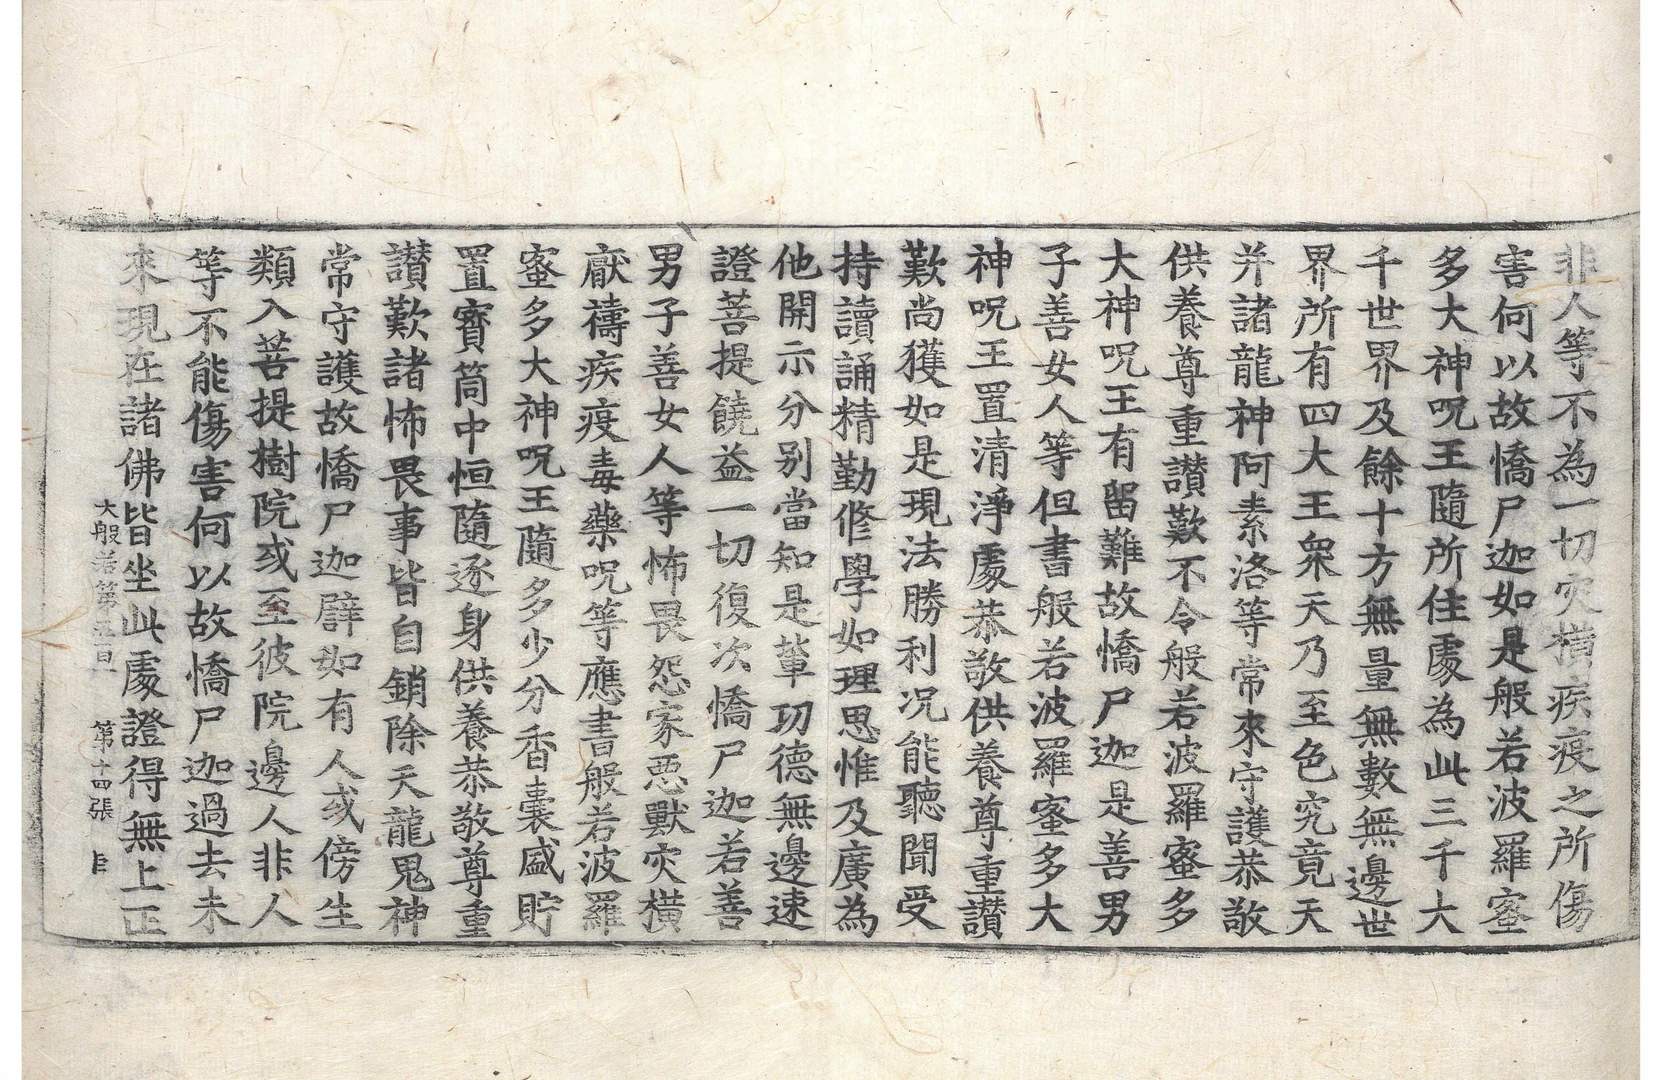 非人等不為一切灾橫疾疫之所傷
害何以故憍尸迦如是般若波羅蜜
多大神呪王隨所住處為此三千大
千世界及餘十方無量無數無邊世
界所有四大王衆天乃至色究竟天
并諸龍神阿素洛等常來守護恭敬
供養尊重讃歎不令般若波羅蜜多
大神呪王有留難故憍尸迦是善男
子善女人等但書般若波羅蜜多大
神呪王置清淨處恭敬供養尊重讃
歎尚獲如是現法勝利况能聽聞受
持讀誦精勤修學如理思惟及廣為
他開示分别當知是輩功德無邊速
證菩提饒益一切復次憍尸迦若善
男子善女人等怖畏怨家惡獸灾橫
厭禱疾疫毒藥呪等應書般若波羅
蜜多大神呪王隨多少分香囊盛貯
置寳筒中恒隨逐身供養恭敬尊重
讃歎諸怖畏事皆自銷除天龍鬼神
常守護故憍尸迦譬如有人或傍生
類入菩提樹院或至彼院邊人非人
等不能傷害何以故憍尸迦過去未
來現在諸佛皆坐此處證得無上正
大般若第五百一 第十四張